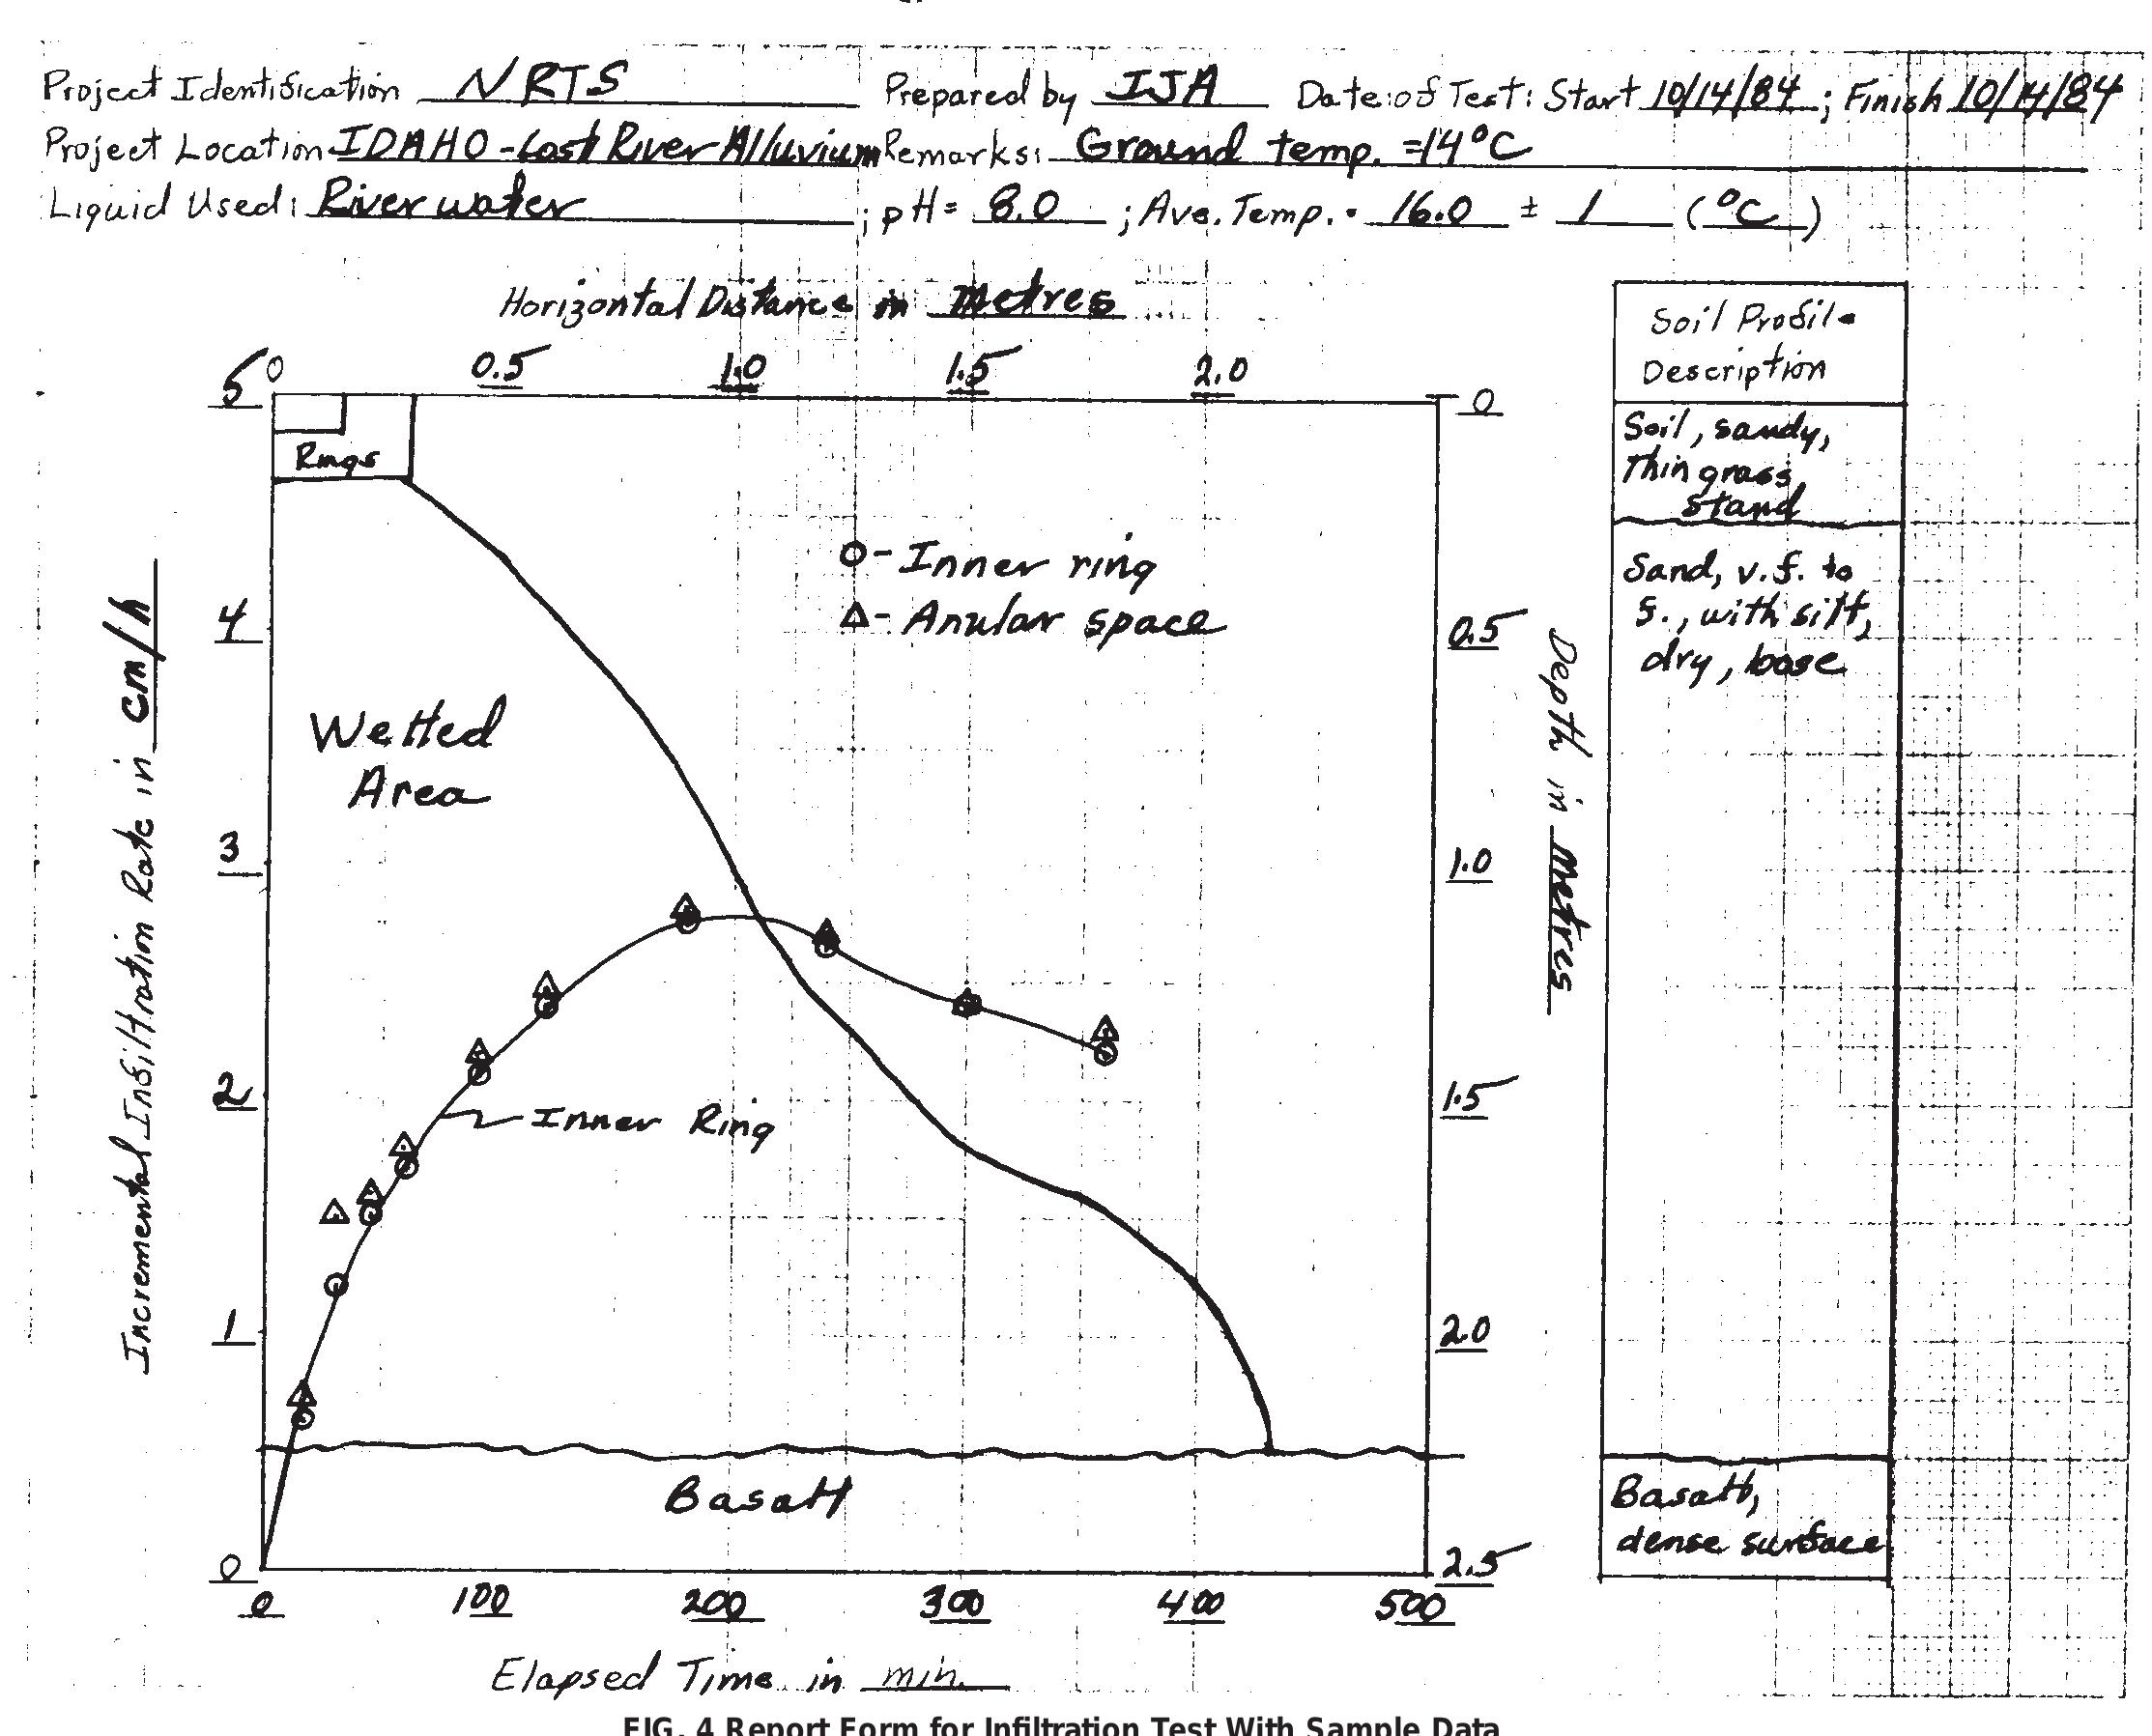 Project Identification NRTS Prepared by IJA Date of Test: Start 10/14/84; Finish 10/14/84
Project Location IDAHO - Lost River Alluvium Remarks: Ground temp. = 14°C
Liquid Used: River water; pH = 8.0; Ave. Temp. = 16.0 ± 1 (°C)
Horizontal Distance in Metres
0 0.5 1.0 1.5 2.0
5
4
3
2
1
0
Incremental Infiltration Rate in cm/h
Rings
O - Inner ring
Δ - Anular space
Wetted
Area
Inner Ring
Basalt
0
0.5
1.0
1.5
2.0
2.5
Depth in Metres
0 100 200 300 400 500
Elapsed Time in min.
Soil Profile
Description
Soil, sandy,
Thin grass
stand
Sand, v.f. to
f., with silt,
dry, base
Basalt,
dense surface
FIG. 4 Report Form for Infiltration Test With Sample Data